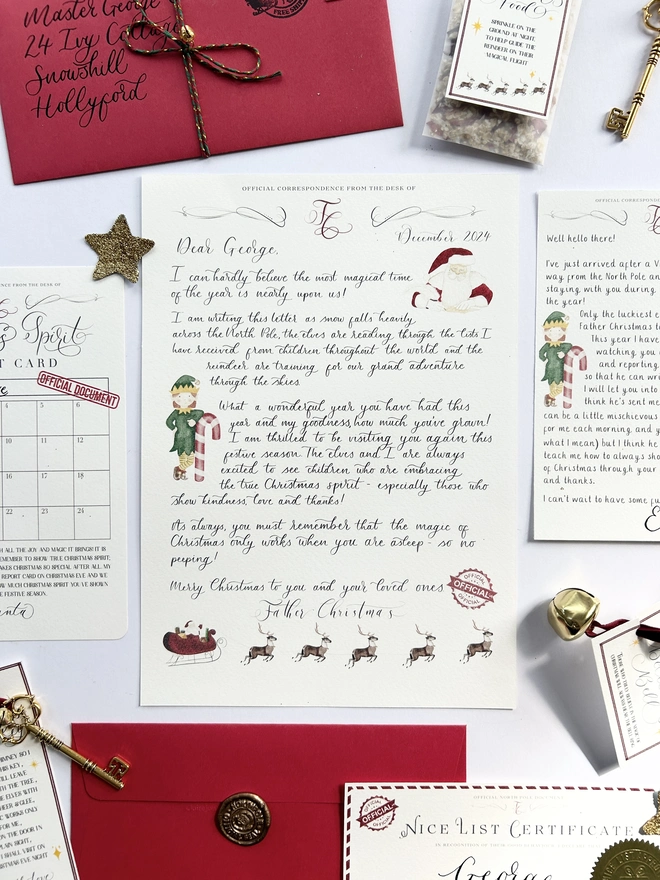 Master George
24 Ivy Cottage
Snowshill
Hollyford
FREE SHIP
Food
SPRINKLE ON THE
GROUND AT NIGHT,
TO HELP GUIDE THE
REINDEER ON THEIR
MAGICAL FLIGHT
OFFICIAL CORRESPONDENCE FROM THE DESK OF
FC
December 2024
Dear George,
I can hardly believe the most magical time
of the year is nearly upon us!
I am writing this letter as snow falls heavily
across the North Pole, the elves are reading through the lists I
have received from children throughout the world and the
reindeer are training for our grand adventure
through the skies.
What a wonderful year you have had this
year and my goodness, how much you've grown!
I am thrilled to be visiting you again this
festive season. The elves and I are always
excited to see children who are embracing
the true Christmas spirit - especially those who
show kindness, love and thanks!
As always, you must remember that the magic of
Christmas only works when you are asleep - so no
peeping!
Merry Christmas to you and your loved ones
Father Christmas
OFFICIAL
OFFICIAL
OFFICIAL
FROM THE DESK OF
Spirit
T CARD
OFFICIAL DOCUMENT
4 5 6
10 11 12
16 17 18
22 23 24
H ALL THE JOY AND MAGIC IT BRINGS IT IS
REMEMBER TO SHOW TRUE CHRISTMAS SPIRIT,
MAKES CHRISTMAS SO SPECIAL AFTER ALL. MY
REPORT CARD ON CHRISTMAS EVE AND WE
OW MUCH CHRISTMAS SPIRIT YOU'VE SHOWN
E FESTIVE SEASON.
anta
Well hello there!
I've just arrived after a V
way from the North Pole an
staying with you during
the year!
Only the luckiest c
Father Christmas t
This year I have
watching you
and reporting
so that he can wri
I will let you into
think he's sent me
can be a little mischievous
for me each morning, and y
what I mean) but I think he
teach me how to always sho
of Christmas through your
and thanks.
I can't wait to have some fu
E
MNEY SO I
THIS KEY,
LL LEAVE
TH THE TREE,
E ELVES WITH
HEER & GLEE,
C WORKS ONLY
FOR ME.
ON THE DOOR IN
PLAIN SIGHT,
SHALL VISIT ON
TMAS EVE NIGHT
Bell
OFFICIAL
NICE LIST CERTIFICATE
George